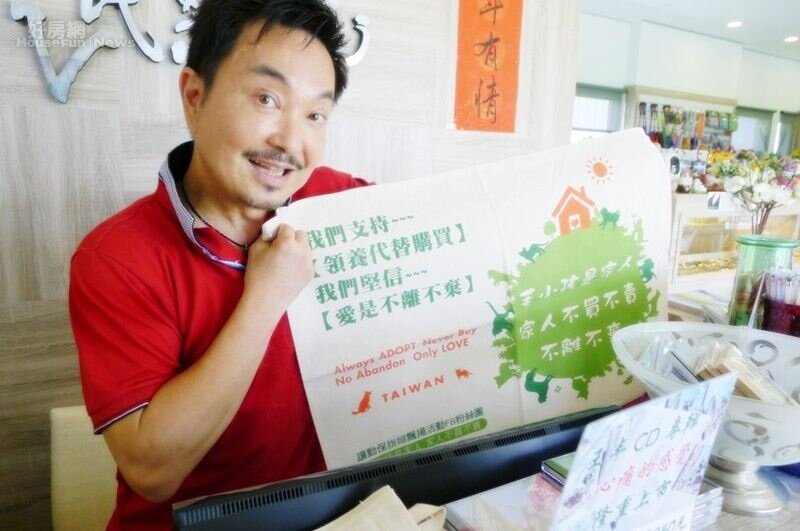 好房網
HouseFun News
民
年有情
我們支持~~~
【領養代替購買】
我們堅信~~~
【愛是不離不棄】
Always ADOPT Never Buy
No Abandon Only LOVE
TAIWAN
讓動保旗幟飄揚活動FB粉絲團
毛小孩是家人
家人不買不賣
不離不棄
CD專輯
心痛的感覺
隆重上市